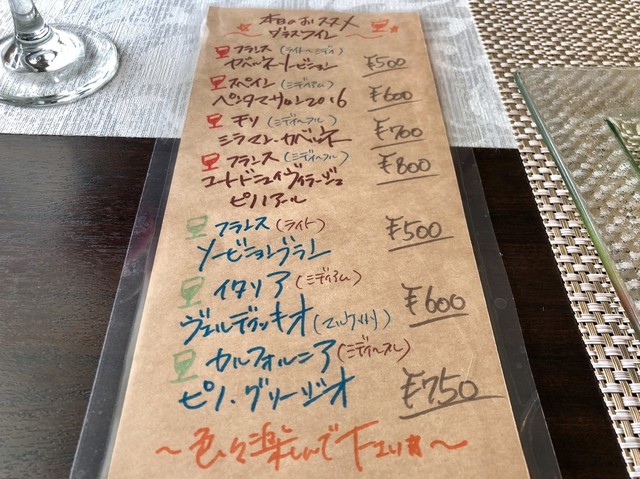 本日のおススメ
グラスワイン
フランス(ライト〜ミディ)
カベルネソービニョン ¥500
スペイン(ミディアム)
ペンタマサロン2016 ¥600
チリ(ミディ〜フル)
ミラマン・カベルネ ¥700
フランス(ミディ〜フル)
コートドニュイヴィラージュ ¥800
ピノノアール
フランス(ライト)
ソービニョンブラン ¥500
イタリア(ミディアム)
ヴェルディッキオ(マルケ州) ¥600
カルフォルニア(ミディ〜フル)
ピノ・グリージオ ¥750
〜色々楽しんで下さい〜